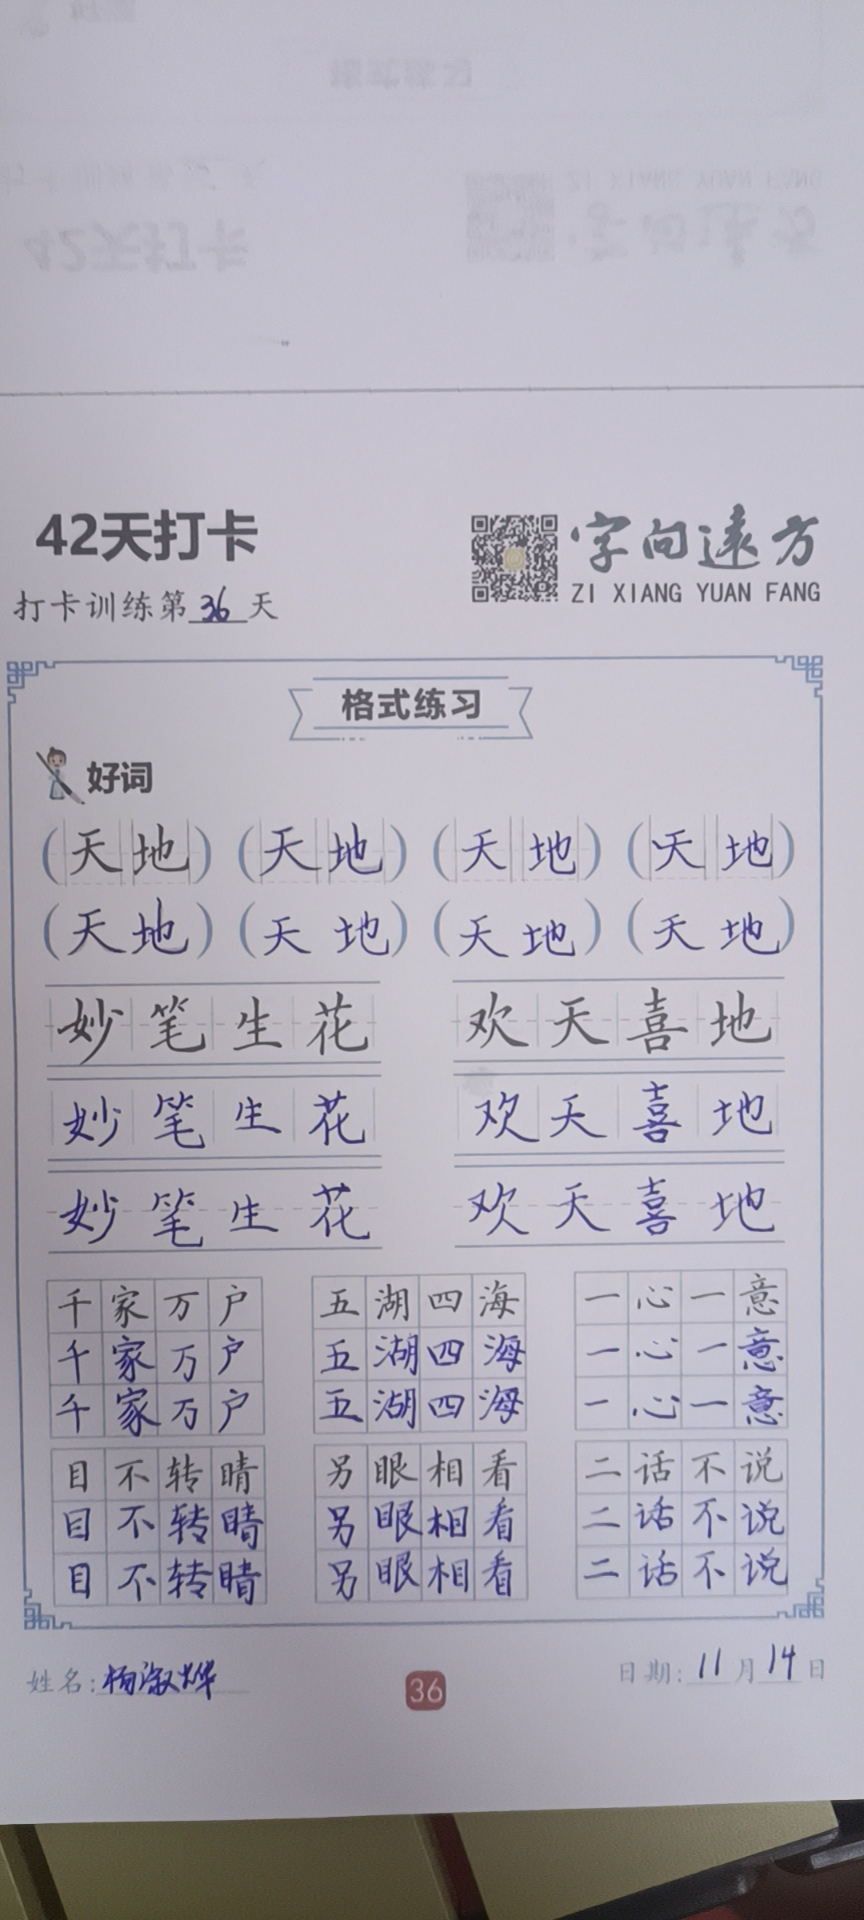 42天打卡
字向远方
ZI XIANG YUAN FANG
打卡训练第36天
格式练习
好词
(天地) (天地) (天地) (天地)
(天地) (天地) (天地) (天地)
妙笔生花 欢天喜地
妙笔生花 欢天喜地
妙笔生花 欢天喜地
千家万户 五湖四海 一心一意
千家万户 五湖四海 一心一意
千家万户 五湖四海 一心一意
目不转晴 另眼相看 二话不说
目不转晴 另眼相看 二话不说
目不转晴 另眼相看 二话不说
姓名:杨淑烨 36 日期:11月14日